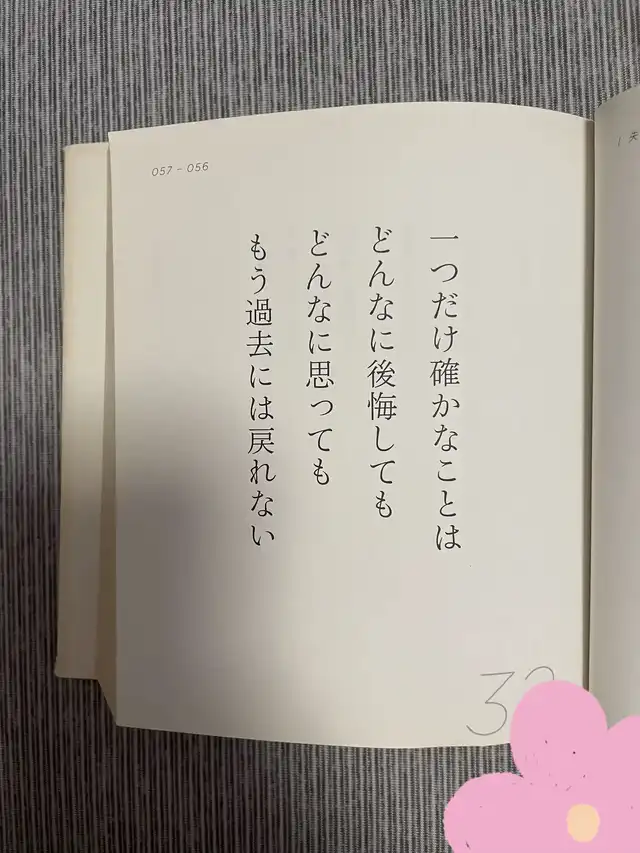 057 - 056
一つだけ確かなことは
どんなに後悔しても
どんなに思っても
もう過去には戻れない